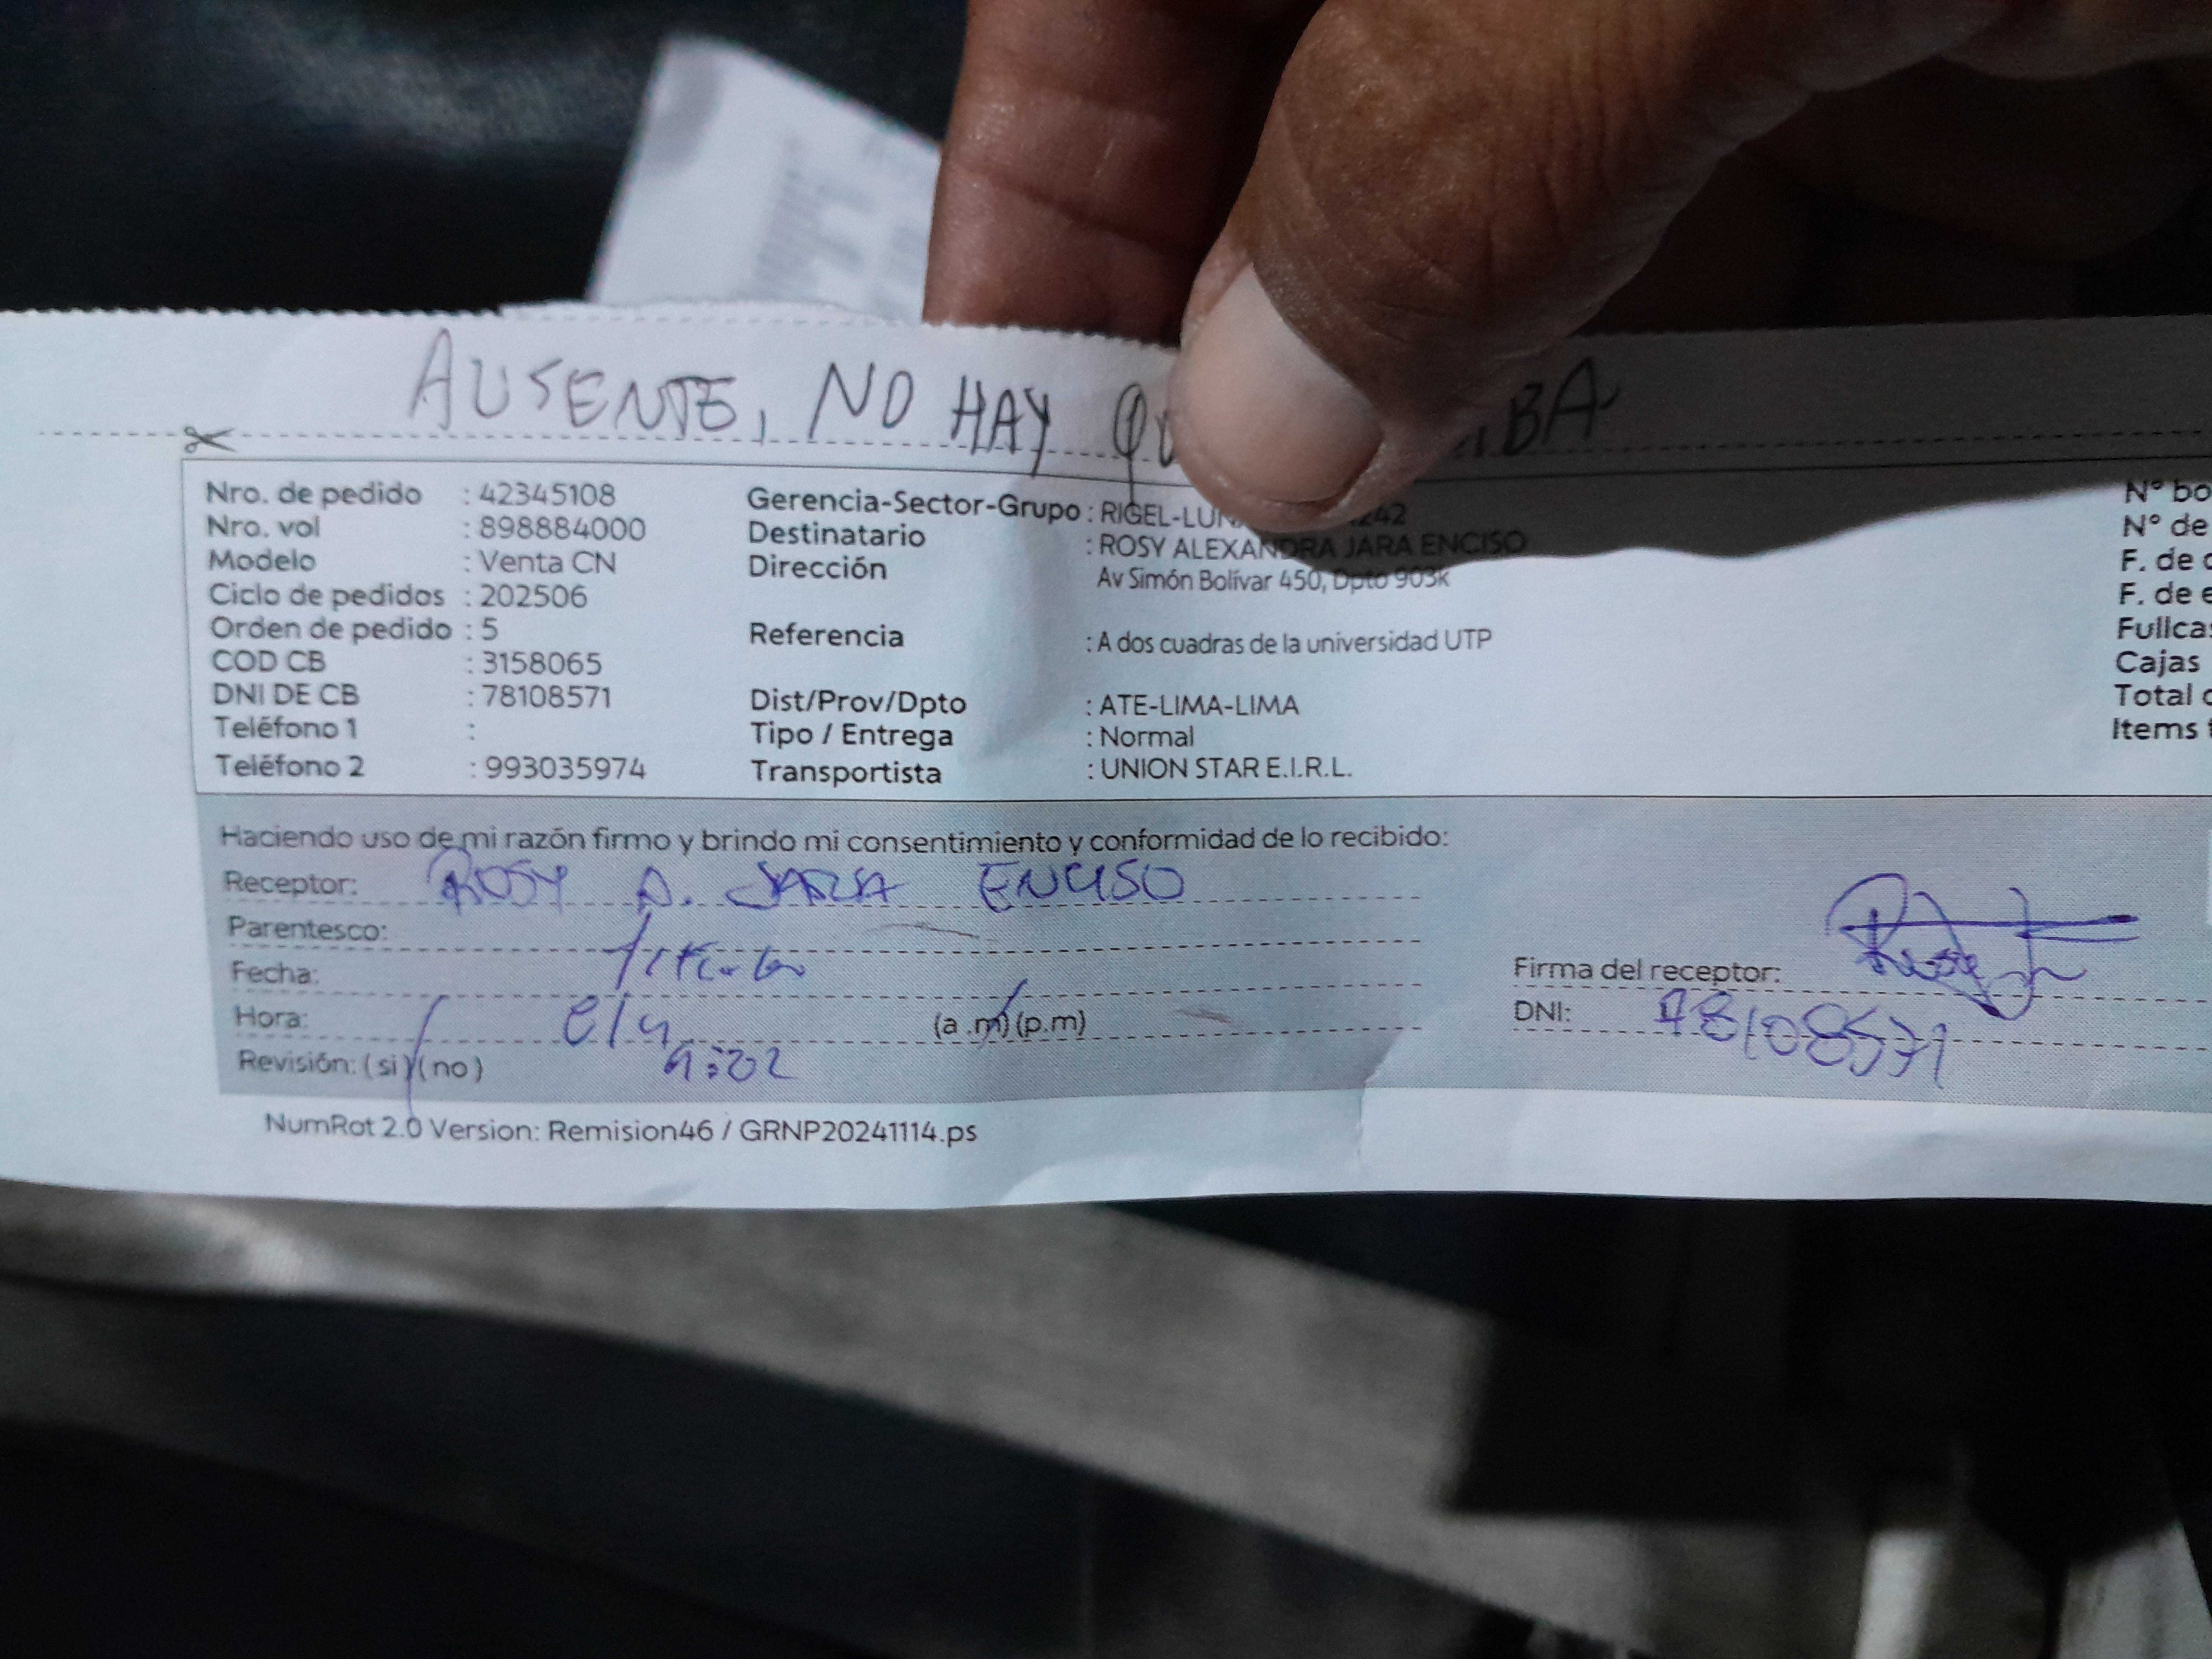 AUSENTE, NO HAY
Nro. de pedido : 42345108
Nro. vol : 898884000
Modelo : Venta CN
Ciclo de pedidos : 202506
Orden de pedido : 5
COD CB : 3158065
DNI DE CB : 78108571
Teléfono 1 :
Teléfono 2 : 993035974
Gerencia-Sector-Grupo : RIGEL-LUN 242
Destinatario : ROSY ALEXANDRA JARA ENCISO
Dirección Av Simón Bolívar 450, Dpto 903k
Referencia : A dos cuadras de la universidad UTP
Dist/Prov/Dpto : ATE-LIMA-LIMA
Tipo / Entrega : Normal
Transportista : UNION STAR E.I.R.L.
N° bo
N° de
F. de
F. de e
Fullca
Cajas
Total
Items
Haciendo uso de mi razón firmo y brindo mi consentimiento y conformidad de lo recibido:
Receptor: ROSY A. JARA ENCISO
Parentesco: Titular
Fecha:
Hora: (a.m) (p.m)
Revisión: (si) (no) 9:02
Firma del receptor:
DNI: 78108571
NumRot 2.0 Version: Remision46 / GRNP20241114.ps